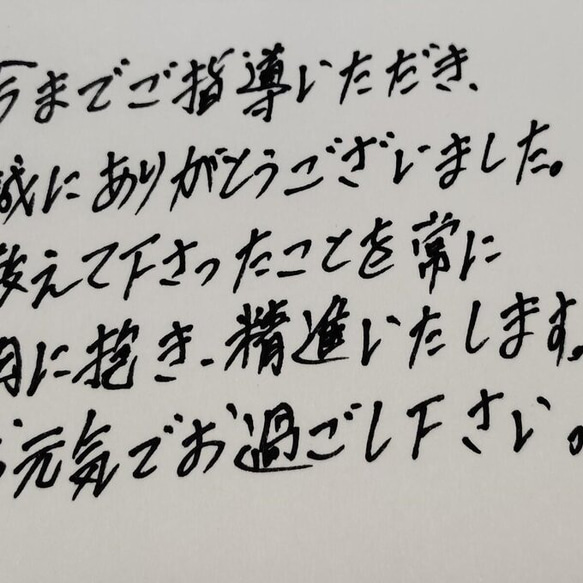 今までご指導いただき、
誠にありがとうございました。
教えて下さったことを常に
胸に抱き、精進いたします。
お元気でお過ごし下さい。